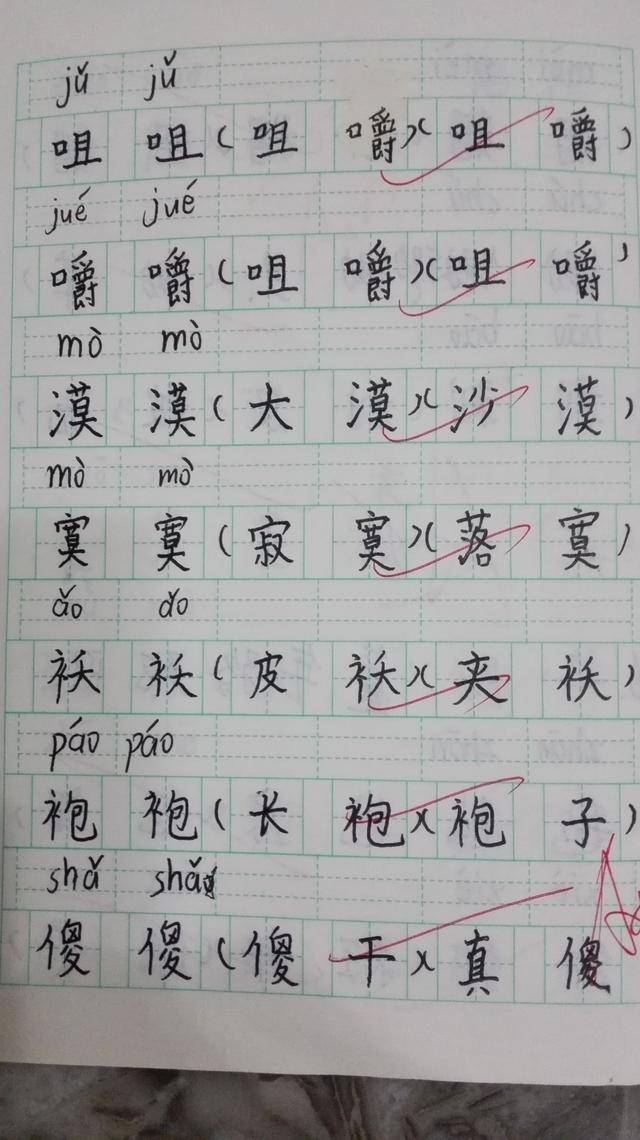 jǔ jǔ
咀 咀(咀 嚼)(咀 嚼)
jué jué
嚼 嚼(咀 嚼)(咀 嚼)
mò mò
漠 漠(大 漠)(沙 漠)
mò mò
寞 寞(寂 寞)(落 寞)
ǎo ǎo
袄 袄(皮 袄)(夹 袄)
páo páo
袍 袍(长 袍)(袍 子)
shǎ shǎ
傻 傻(傻 干)(真 傻